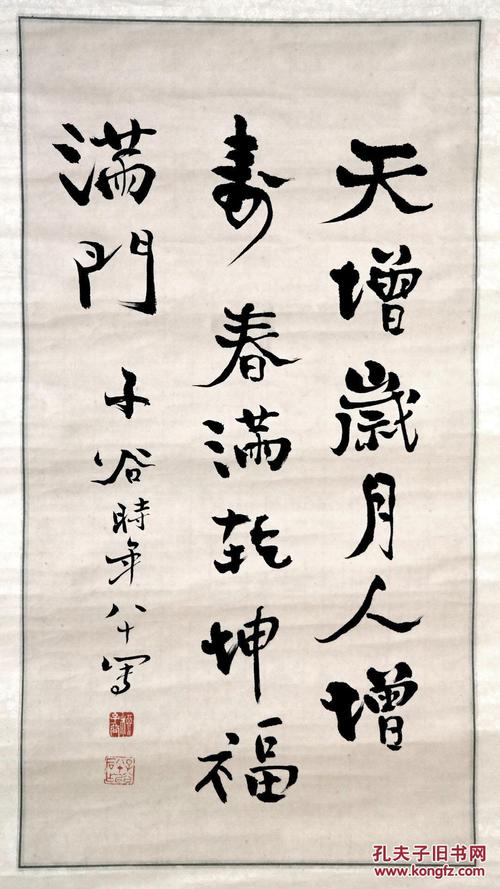 天增歲月人增
壽春滿乾坤福
滿門
子谷時年八十寫
孔夫子旧书网
www.kongfz.com